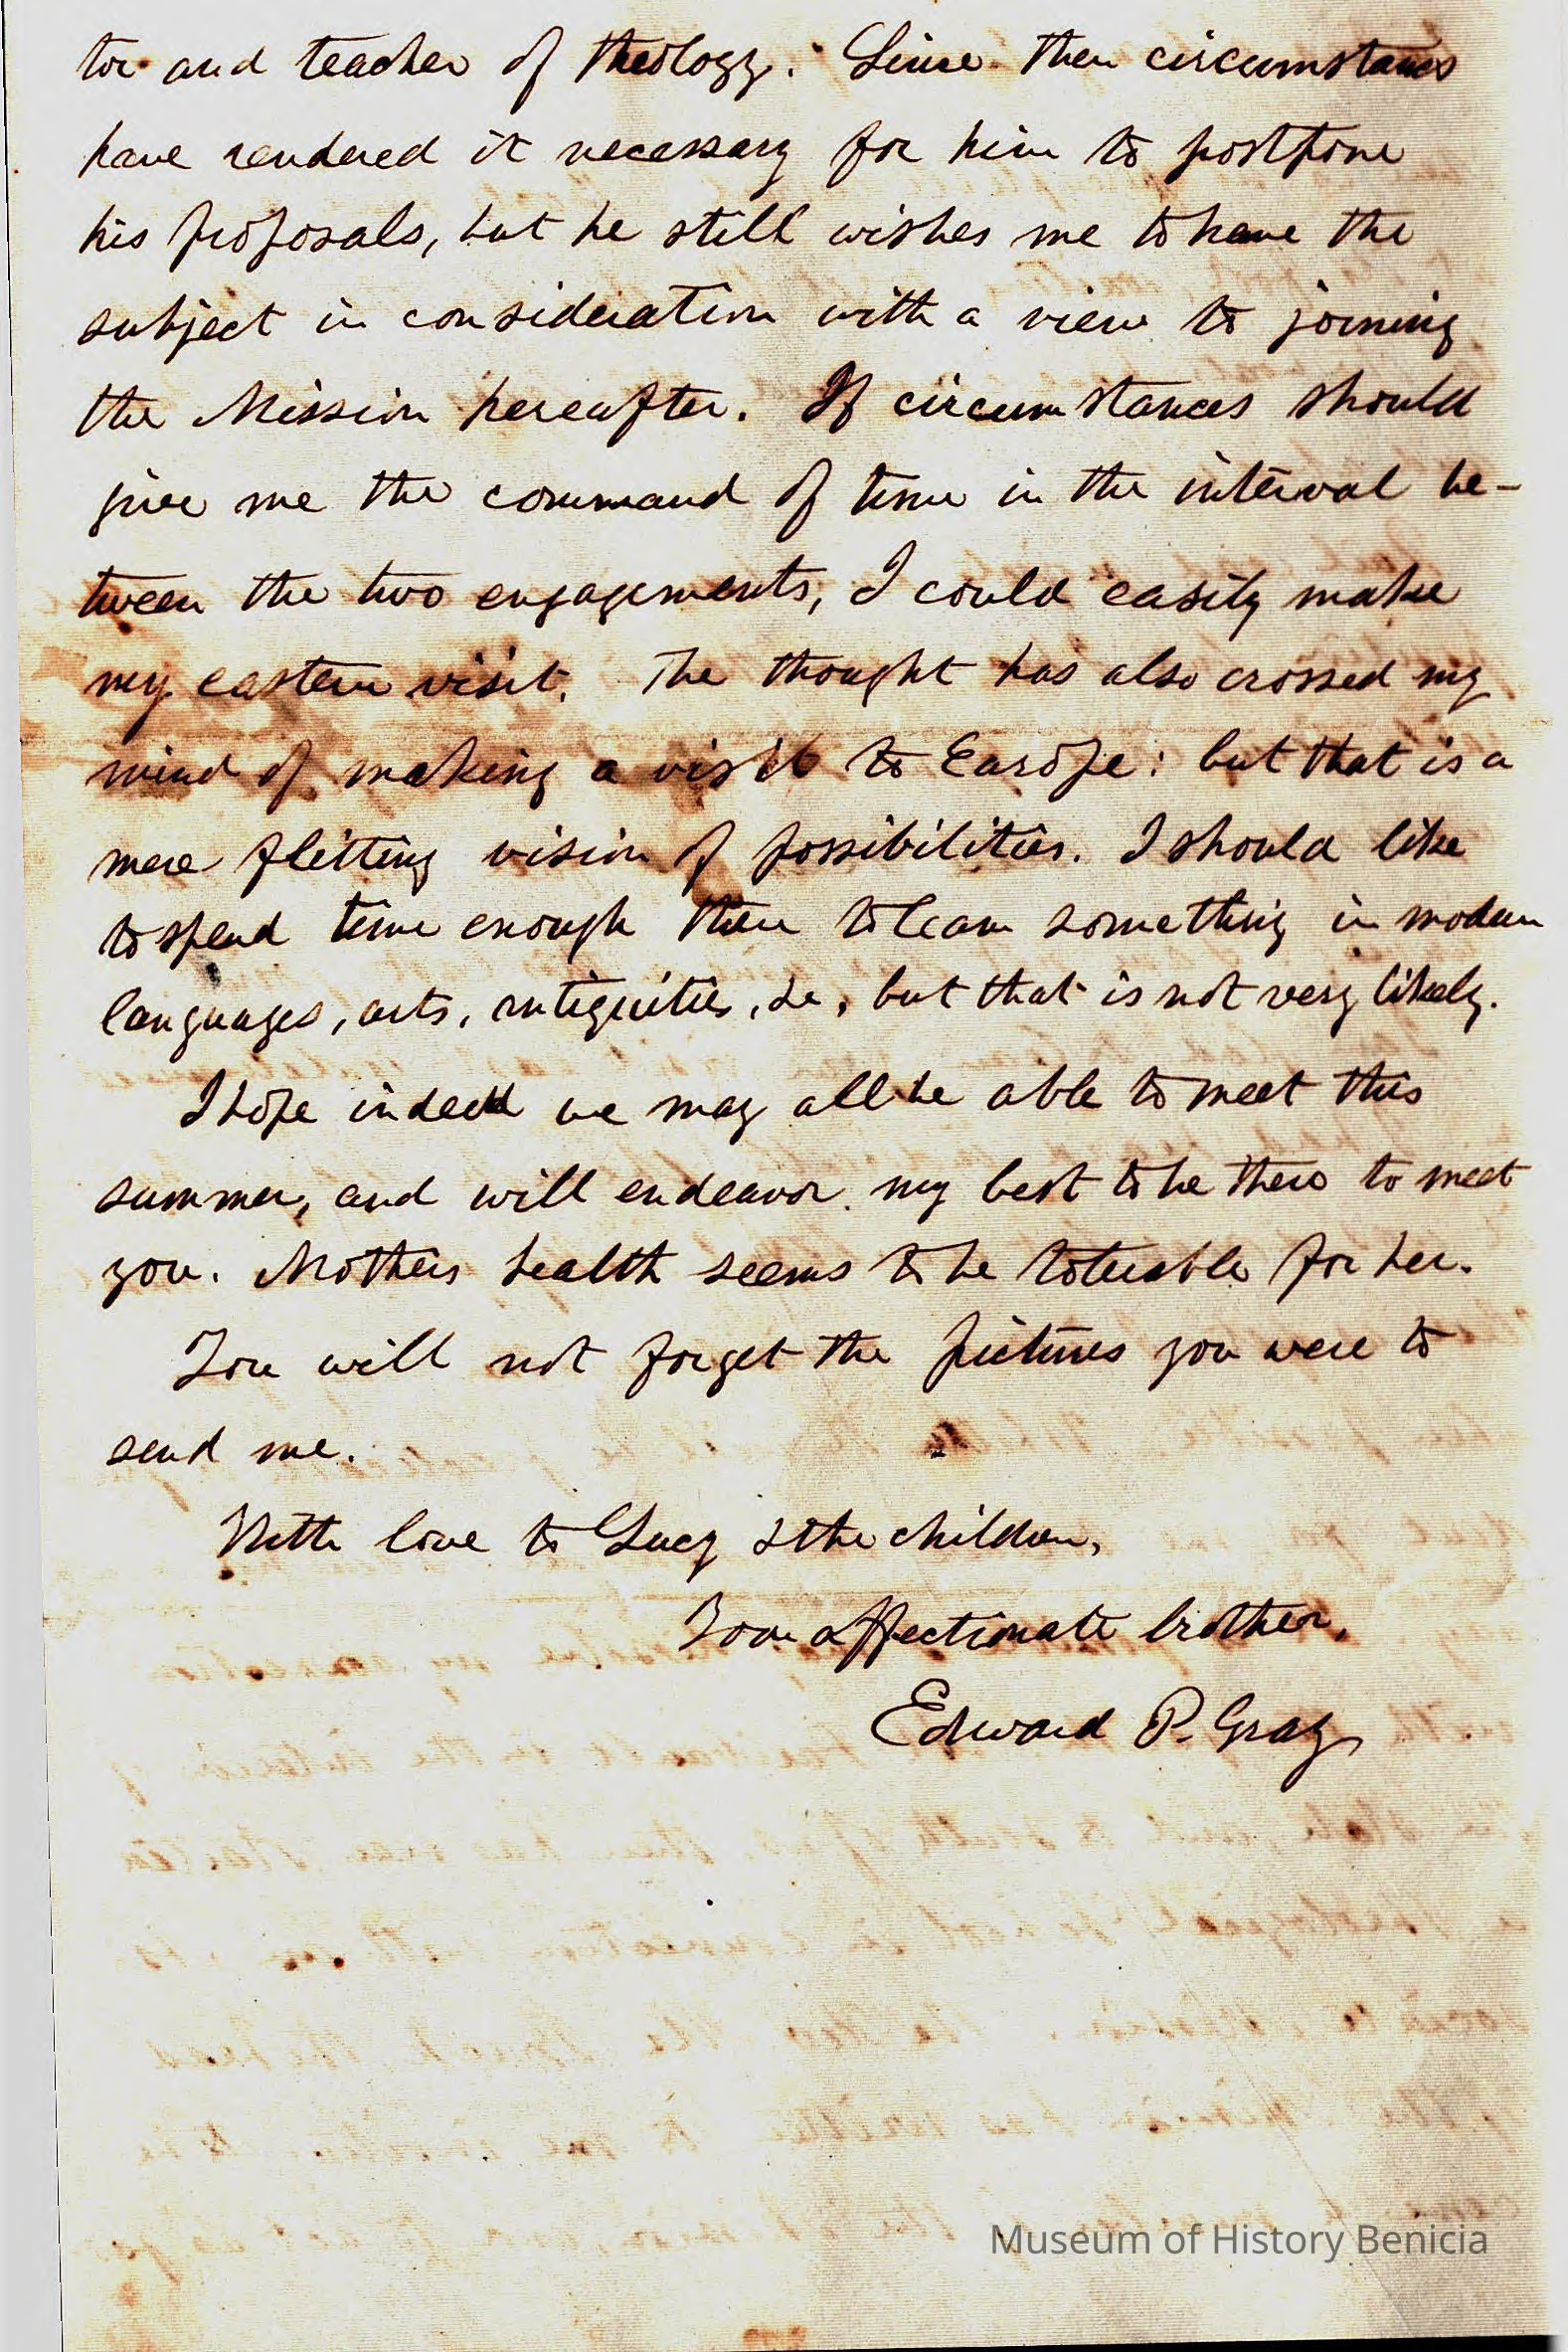 tor and teacher of theology. Since then circumstances
have rendered it necessary for him to postpone
his proposals, but he still wishes me to have the
subject in consideration with a view to joining
the Mission hereafter. If circumstances should
give me the command of time in the interval be-
tween the two engagements, I could easily make
my eastern visit. The thought has also crossed my
mind of making a visit to Europe: but that is a
mere flitting vision of possibilities. I should like
to spend time enough there to learn something in modern
languages, arts, antiquities, &c, but that is not very likely.
I hope indeed we may all be able to meet this
summer, and will endeavor my best to be there to meet
you. Mothers health seems to be tolerable for her.
You will not forget the pictures you were to
send me.
With love to Lucy & the children,
Your affectionate brother,
Edward P. Gray
Museum of History Benicia